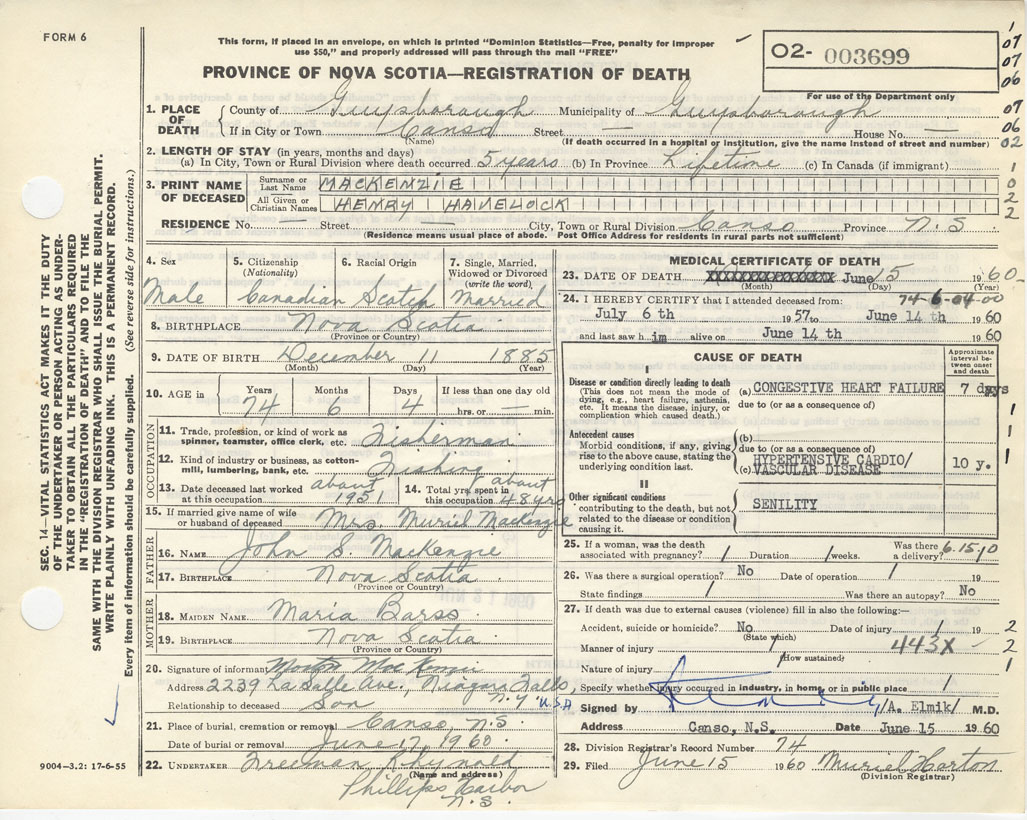 FORM 6
This form, if placed in an envelope, on which is printed "Dominion Statistics—Free, penalty for improper
use $50," and properly addressed will pass through the mail "FREE"
02- 003699
For use of the Department only
PROVINCE OF NOVA SCOTIA—REGISTRATION OF DEATH
1
07
07
06
07
06
02
1
0
2
2
1. PLACE OF DEATH
County of Guysborough Municipality of Guysborough
If in City or Town Canso Street — House No. —
(Name) (If death occurred in a hospital or institution, give the name instead of street and number)
2. LENGTH OF STAY (in years, months and days)
(a) In City, Town or Rural Division where death occurred 5 years (b) In Province Lifetime (c) In Canada (if immigrant)
3. PRINT NAME OF DECEASED
Surname or Last Name MACKENZIE
All Given or Christian Names HENRY HAVELOCK
RESIDENCE No. — Street — City, Town or Rural Division Canso Province N.S
(Residence means usual place of abode. Post Office Address for residents in rural parts not sufficient)
4. Sex
Male
5. Citizenship
(Nationality)
Canadian
6. Racial Origin
Scotch
7. Single, Married,
Widowed or Divorced
(write the word)
Married
8. BIRTHPLACE Nova Scotia
(Province or Country)
9. DATE OF BIRTH December 11 1885
(Month) (Day) (Year)
10. AGE in
Years 74
Months 6
Days 4
If less than one day old
hrs. or — min.
OCCUPATION
11. Trade, profession, or kind of work as
spinner, teamster, office clerk, etc. Fisherman
12. Kind of industry or business, as cotton-
mill, lumbering, bank, etc. Fishing
13. Date deceased last worked
at this occupation about 1951
14. Total yrs. spent in
this occupation about 48 yrs
15. If married give name of wife
or husband of deceased Mrs. Muriel Mackenzie
FATHER
16. NAME John S. MacKenzie
17. BIRTHPLACE Nova Scotia
(Province or Country)
MOTHER
18. MAIDEN NAME Maria Barss
19. BIRTHPLACE Nova Scotia
(Province or Country)
20. Signature of informant Morton MacKenzie
Address 2239 LaSalle Ave., Niagara Falls,
N.Y U.S.A
Relationship to deceased Son
21. Place of burial, cremation or removal Canso, N.S.
Date of burial or removal June 17, 1960
22. UNDERTAKER Freeman Rhynold
(Name and address)
Phillips Harbor
N.S.
MEDICAL CERTIFICATE OF DEATH
23. DATE OF DEATH June 15 1960
(Month) (Day) (Year)
74-6-04-00
24. I HEREBY CERTIFY that I attended deceased from:
July 6 th 1957 to June 14 th 1960
and last saw him alive on June 14 th 1960
CAUSE OF DEATH
Approximate
interval be-
tween onset
and death
I
Disease or condition directly leading to death
(This does not mean the mode of
dying, e.g., heart failure, asthenia,
etc. It means the disease, injury, or
complication which caused death.)
(a) CONGESTIVE HEART FAILURE 7 days
due to (or as a consequence of)
Antecedent causes
Morbid conditions, if any, giving
rise to the above cause, stating the
underlying condition last.
(b)
due to (or as a consequence of)
(c) HYPERTENSIVE CARDIO/
VASCULAR DISEASE 10 y.
1
1
1
II
Other significant conditions
contributing to the death, but not
related to the disease or condition
causing it.
SENILITY
25. If a woman, was the death
associated with pregnancy? / Duration / weeks. Was there
a delivery?
6.15.10
26. Was there a surgical operation? No Date of operation / 19
State findings / Was there an autopsy? No
27. If death was due to external causes (violence) fill in also the following:—
Accident, suicide or homicide? No Date of injury / 19
(State which)
Manner of injury / 443X –
(How sustained)
Nature of injury /
2
2
1
Specify whether injury occurred in industry, in home, or in public place /
Signed by /A. Elmik/ M.D.
Address Canso, N.S. Date June 15 1960
28. Division Registrar's Record Number 74
29. Filed June 15 1960 Muriel Horton
(Division Registrar)
SEC. 14—VITAL STATISTICS ACT MAKES IT THE DUTY
OF THE UNDERTAKER OR PERSON ACTING AS UNDER-
TAKER TO OBTAIN ALL THE PARTICULARS REQUIRED
IN THE "REGISTRATION OF DEATH" AND TO FILE THE
SAME WITH THE DIVISION REGISTRAR WHO SHALL ISSUE THE BURIAL PERMIT.
WRITE PLAINLY WITH UNFADING INK. THIS IS A PERMANENT RECORD.
Every item of information should be carefully supplied. (See reverse side for instructions.)
9004—3.2: 17-6-55